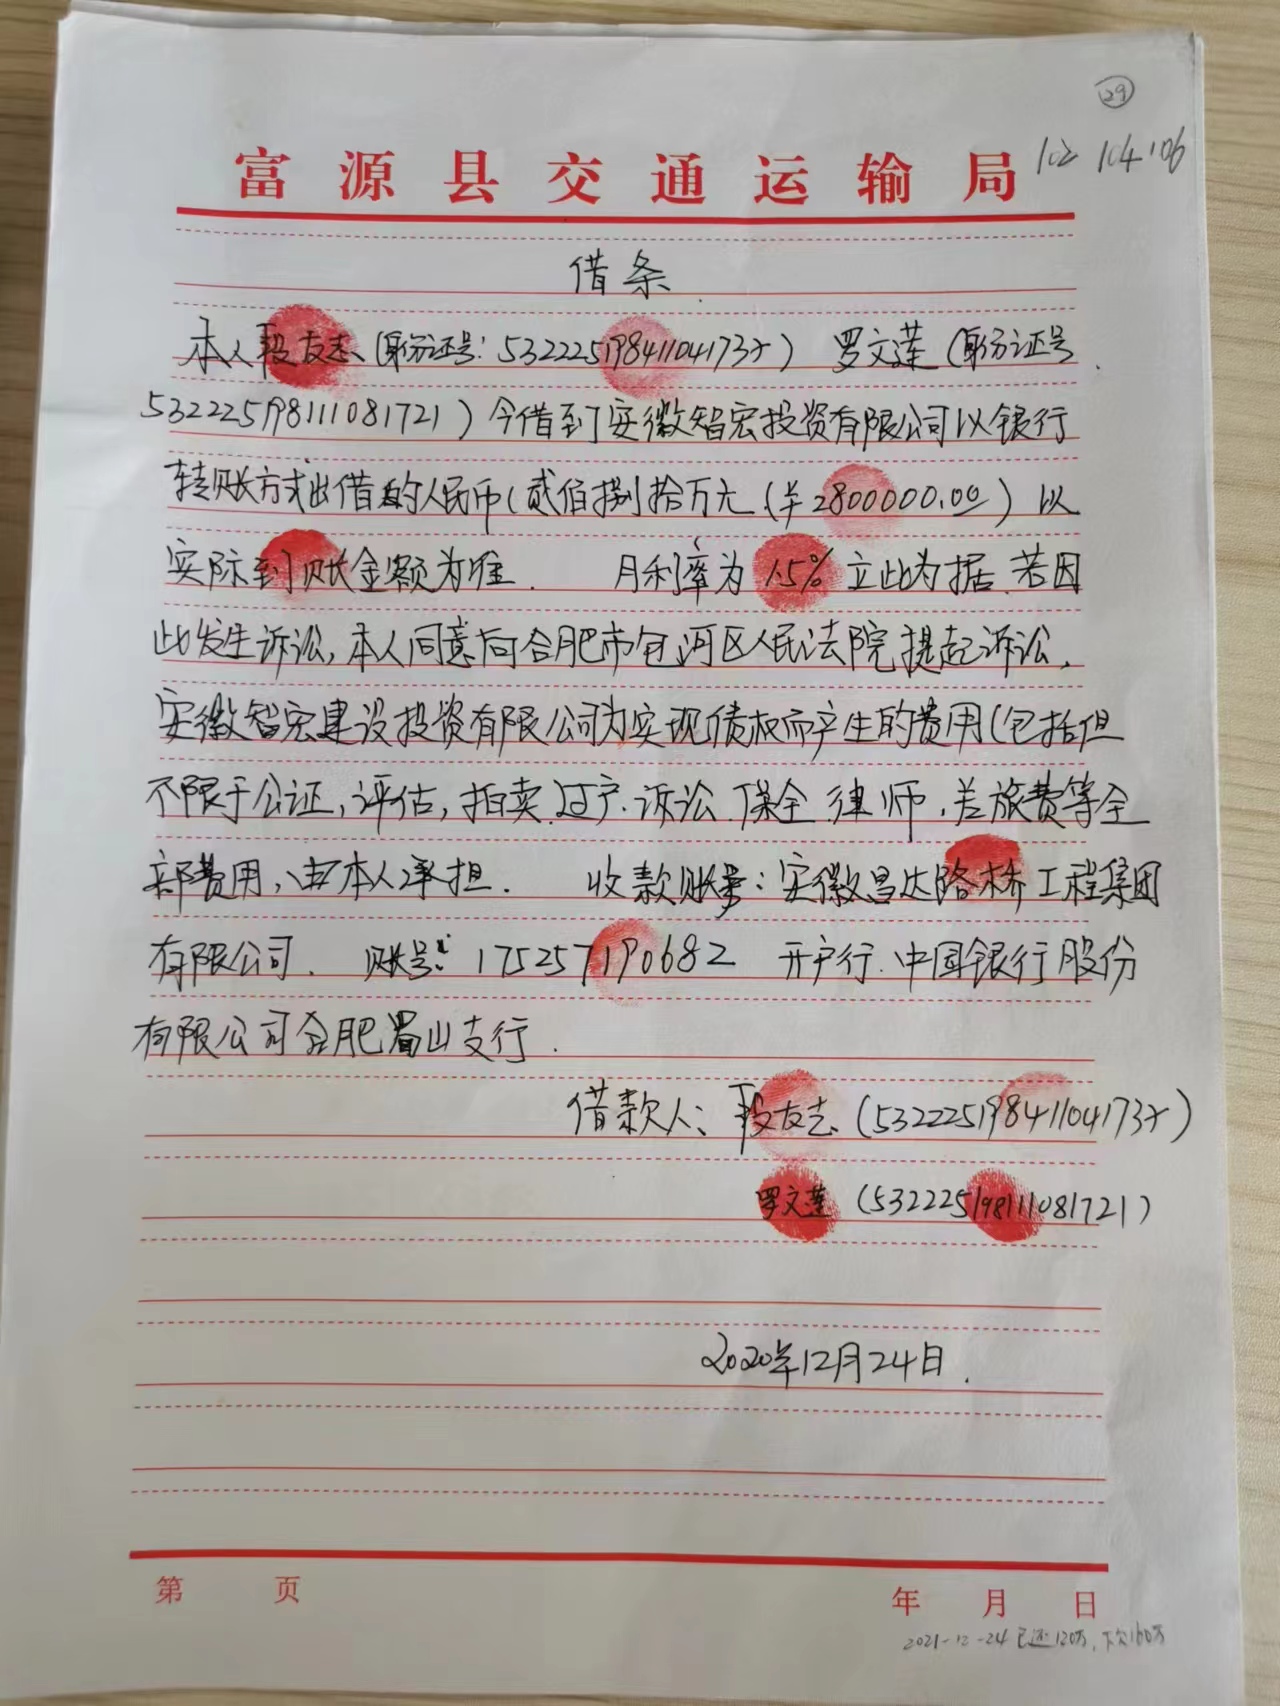 29
富源县交通运输局
102 104 106
借条
本人段友志(身份证号:53222519841104173X) 罗文莲(身份证号
532225198111081721)今借到安徽智宏投资有限公司以银行
转账方式出借的人民币(贰佰捌拾万元(¥2800000.00)以
实际到账金额为准. 月利率为1.5%立此为据.若因
此发生诉讼,本人同意向合肥市包河区人民法院提起诉讼,
安徽智宏建设投资有限公司为实现债权而产生的费用(包括但
不限于公证,评估,拍卖.过户.诉讼.保全.律师,差旅费等全
部费用,由本人承担. 收款账号:安徽昌达路桥工程集团
有限公司. 账号:175257190682 开户行.中国银行股份
有限公司合肥蜀山支行.
借款人:段友志(53222519841104173X)
罗文莲(532225198111081721)
2020年12月24日.
第 页 年 月 日
2021-12-24已还120万,下欠160万